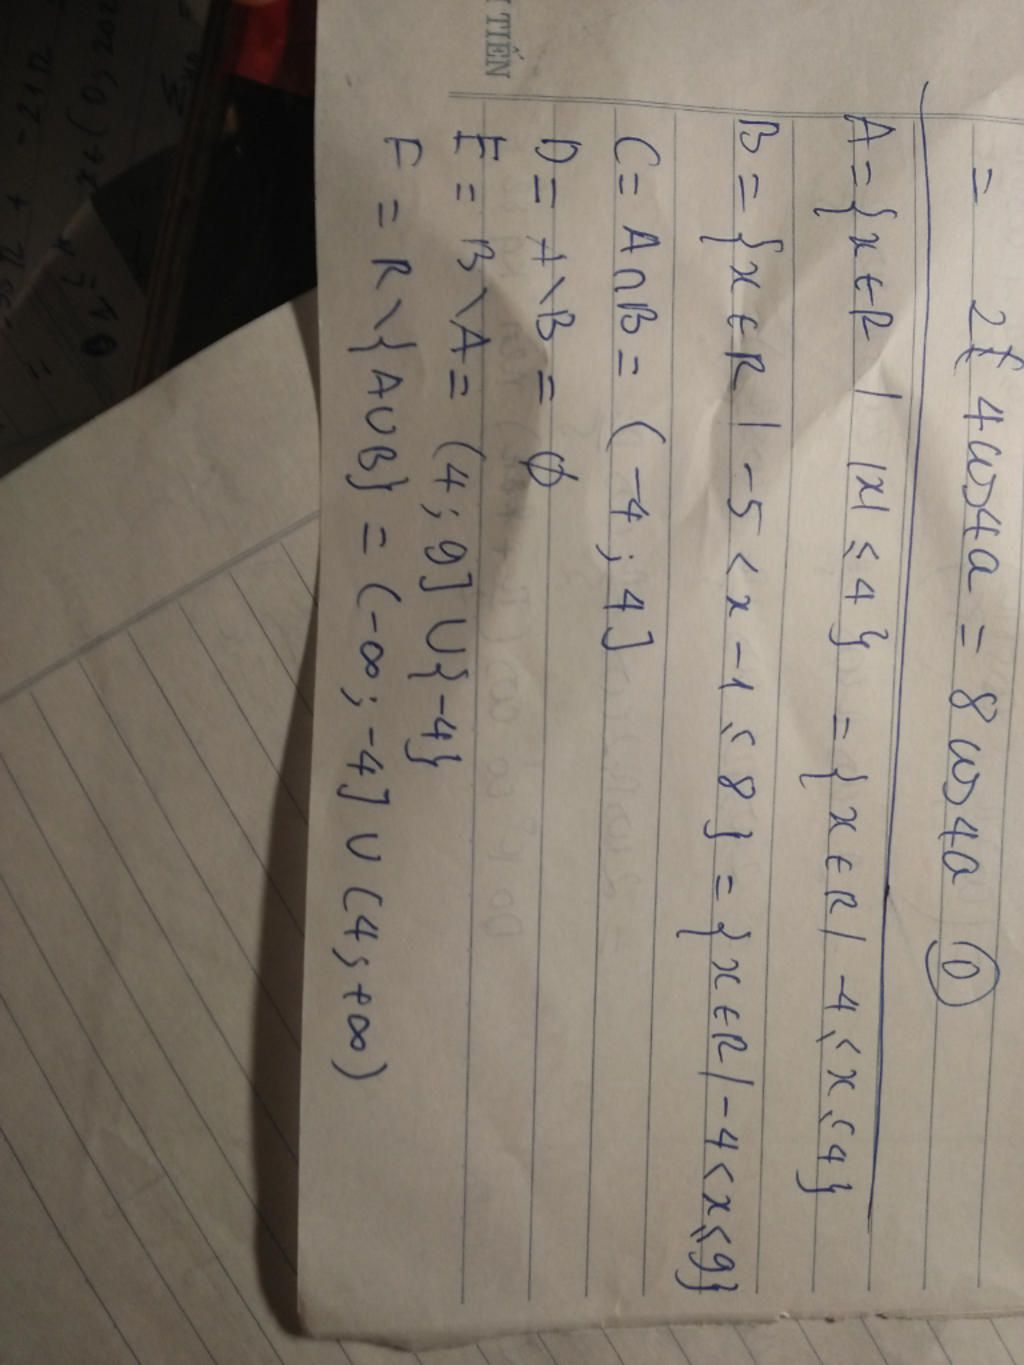 = 2[4cos4a = 8cos4a (D)
A = {x∈R | |x| ≤ 4} = {x∈R | -4 ≤ x ≤ 4}
B = {x∈R | -5 < x - 1 ≤ 8} = {x∈R | -4 < x ≤ 9}
C = A∩B = (-4; 4]
D = A\B = ∅
E = B\A = (4; 9] ∪ {-4}
F = R\{A∪B} = (-∞; -4] ∪ (4; +∞)
TIẾN